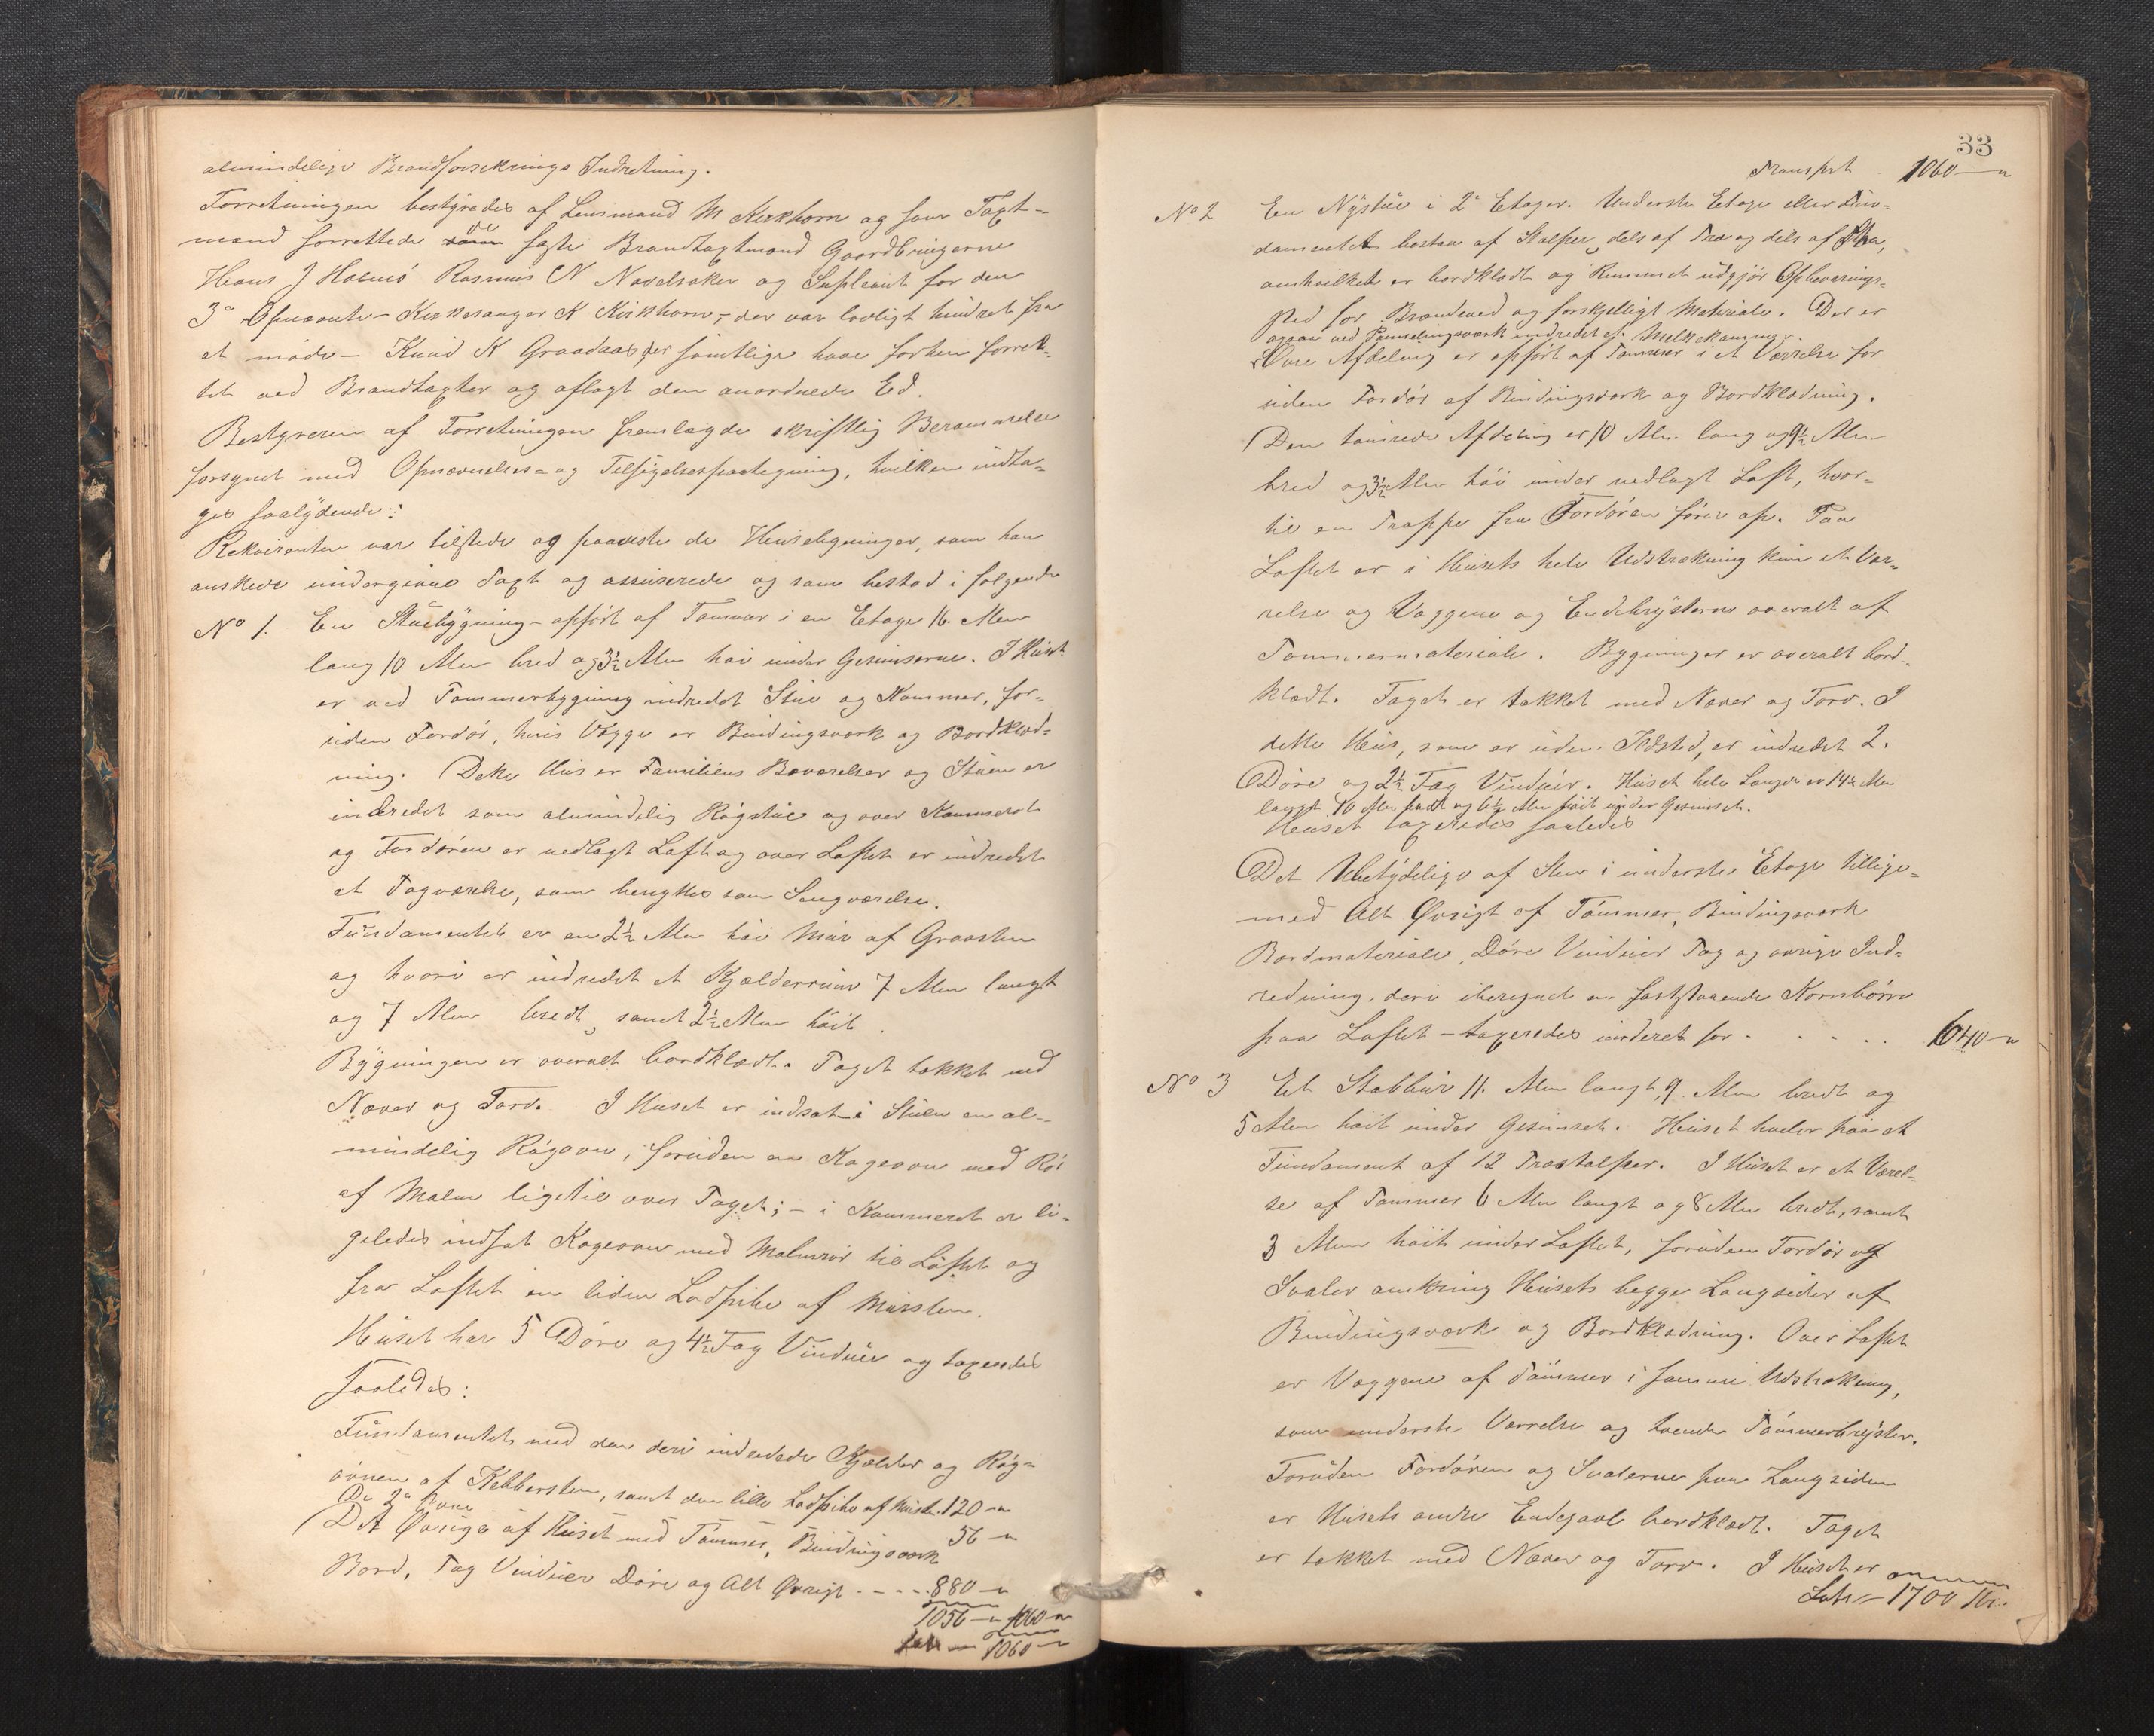 almindelige Brandforsikrings Indretning.
Forretningen bestyredes af Lensmand M Kirkhorn og som Taxt-
mænd forrettede de faste Brandtaxtmænd Gaardbrugerne
Hans J Rasmus N Navelsaker og Supleant for den
3die Opnævnte - Kirkesanger K Kirkhorn, - der var lovligt hindret fra
at møde - Knud K Graadaas, der samtlige have forhen forret-
tet ved Brandtaxter og aflagt den anordnede Ed.
Bestyreren af Forretningen fremlagde skriftlig Berammelse
forsynet med Opnævnelses- og Tilsigelsespaategning, hvilken indta-
ges saalydende:
Rekvirenten var tilstede og paaviste de Huusbygninger, som han
ønskede undergivne Taxt og assurerede og som bestod i følgende
No 1. En Stuebygning - opført af Tømmer i en Etage 16 Alen
lang 10 Alen bred og 3½ Alen høi under Gesimserne. I Huset
er ved Tømmerbygning indredet Stue og Kammer, for-
uden Fordør, hvis Vægge er Bindingsværk og Bordklæd-
ning. Dette Hus er Familiens Beværelser og Stuen er
indredet som almindelig Røgstue og over Kammeret
og Fordøren er nedlagt Loft og over Loftet er indredet
et Tagværelse, som benyttes som Sengværelse.
Fundamentet er en 2½ Alen høi Mur af Graasten
og hvori er indredet et Kjælderrum 7 Alen langt
og 7 Alen bredt, samt 2½ Alen høit.
Bygningen er overalt bordklædt. Taget tækket med
Næver og Torv. I Huset er indsat i Stuen en al-
mindelig Røgovn, foruden en Kageovn med Rør
af Malm ligetil over Taget; - i Kammeret er li-
geledes indsat Kageovn med Malmrør til Loftet og
fra Loftet en liden Ladpibe af Mursten.
Huset har 5 Døre og 4½ Fag Vinduer og taxeredes
saaledes:
Fundamentet med den deri indredede Kjælder og Røg-
ovnen af Klebbersten, samt den lille Ladpibe af Mursten 120 -
De 2de Ovne 56 -
Det Øvrige af Huset med Tømmer, Bindingsværk
Bord, Tag Vinduer Døre og Alt Øvrigt - - - - 880 -
1056 - 1060 -
Lat. 1060 -
33
Transport 1060 -
No 2 En Nystue i 2de Etager. Underste Etage eller Fun-
damentet bestaar af Stolper, dels af Træ og dels af
omhvilket er bordklædt og Rummet udgjør Opbevarings-
sted for Brændeved og forskjelligt Materiale. Der er
ogsaa ved Panelingsværk indredet et Melkekammer.
Øvre Afdeling er opført af Tømmer i et Værrelse for
uden Fordør af Bindingsværk og Bordklædning.
Den tømrede Afdeling er 10 Alen lang og 9½ Alen
bred og 3½ Alen høi under nedlagt Loft, hvor-
til en Trappe fra Fordøren fører op. Paa
Loftet er i Husets hele Udstrækning kun et Vær-
relse og Væggene og Endebrysterne overalt af
Tømmermateriale. Bygningen er overalt bord-
klædt. Taget er tækket med Næver og Torv. I
dette Hus, som er uden Ildsted, er indredet 2.
Døre og 2½ Fag Vinduer. Huset hele Længde er 14½ Alen
langt 10 Alen bredt og 6½ Alen høit under Gesimset.
Huset taxeredes saaledes
Det Ubetydelige af Mur i underste Etage tillige-
med Alt Øvrigt af Tømmer, Bindingsværk
Bordmateriale, Døre Vinduer Tag og øvrige Ind-
redning, deri iberegnet en fastststaaende Kornbørre
paa Loftet - taxeredes vurderet for - - - - - 640 -
No 3 Et Stabbur 11. Alen langt, 9 Alen bredt og
5 Alen høit under Gesimset. Huset hviler paa et
Fundament af 12 Træstolper. I Huset er et Værel-
se af Tømmer 6 Alen langt og 8 Alen bredt, samt
3 Alen høit under Loftet, foruden Fordør og
Svaler omkring Husets begge Langsider af
Bindingsværk og Bordklædning. Over Loftet
er Væggene af Tømmer i samme Udstrækning,
som underste Værrelse og tvende Tømmerbryster.
Foruden Fordøren og Svalerne paa Langsiden
er Husets andre Endegavl bordklædt. Taget
er tækket med Næver og Torv. I Huset er
Lat. - 1700 Kr.